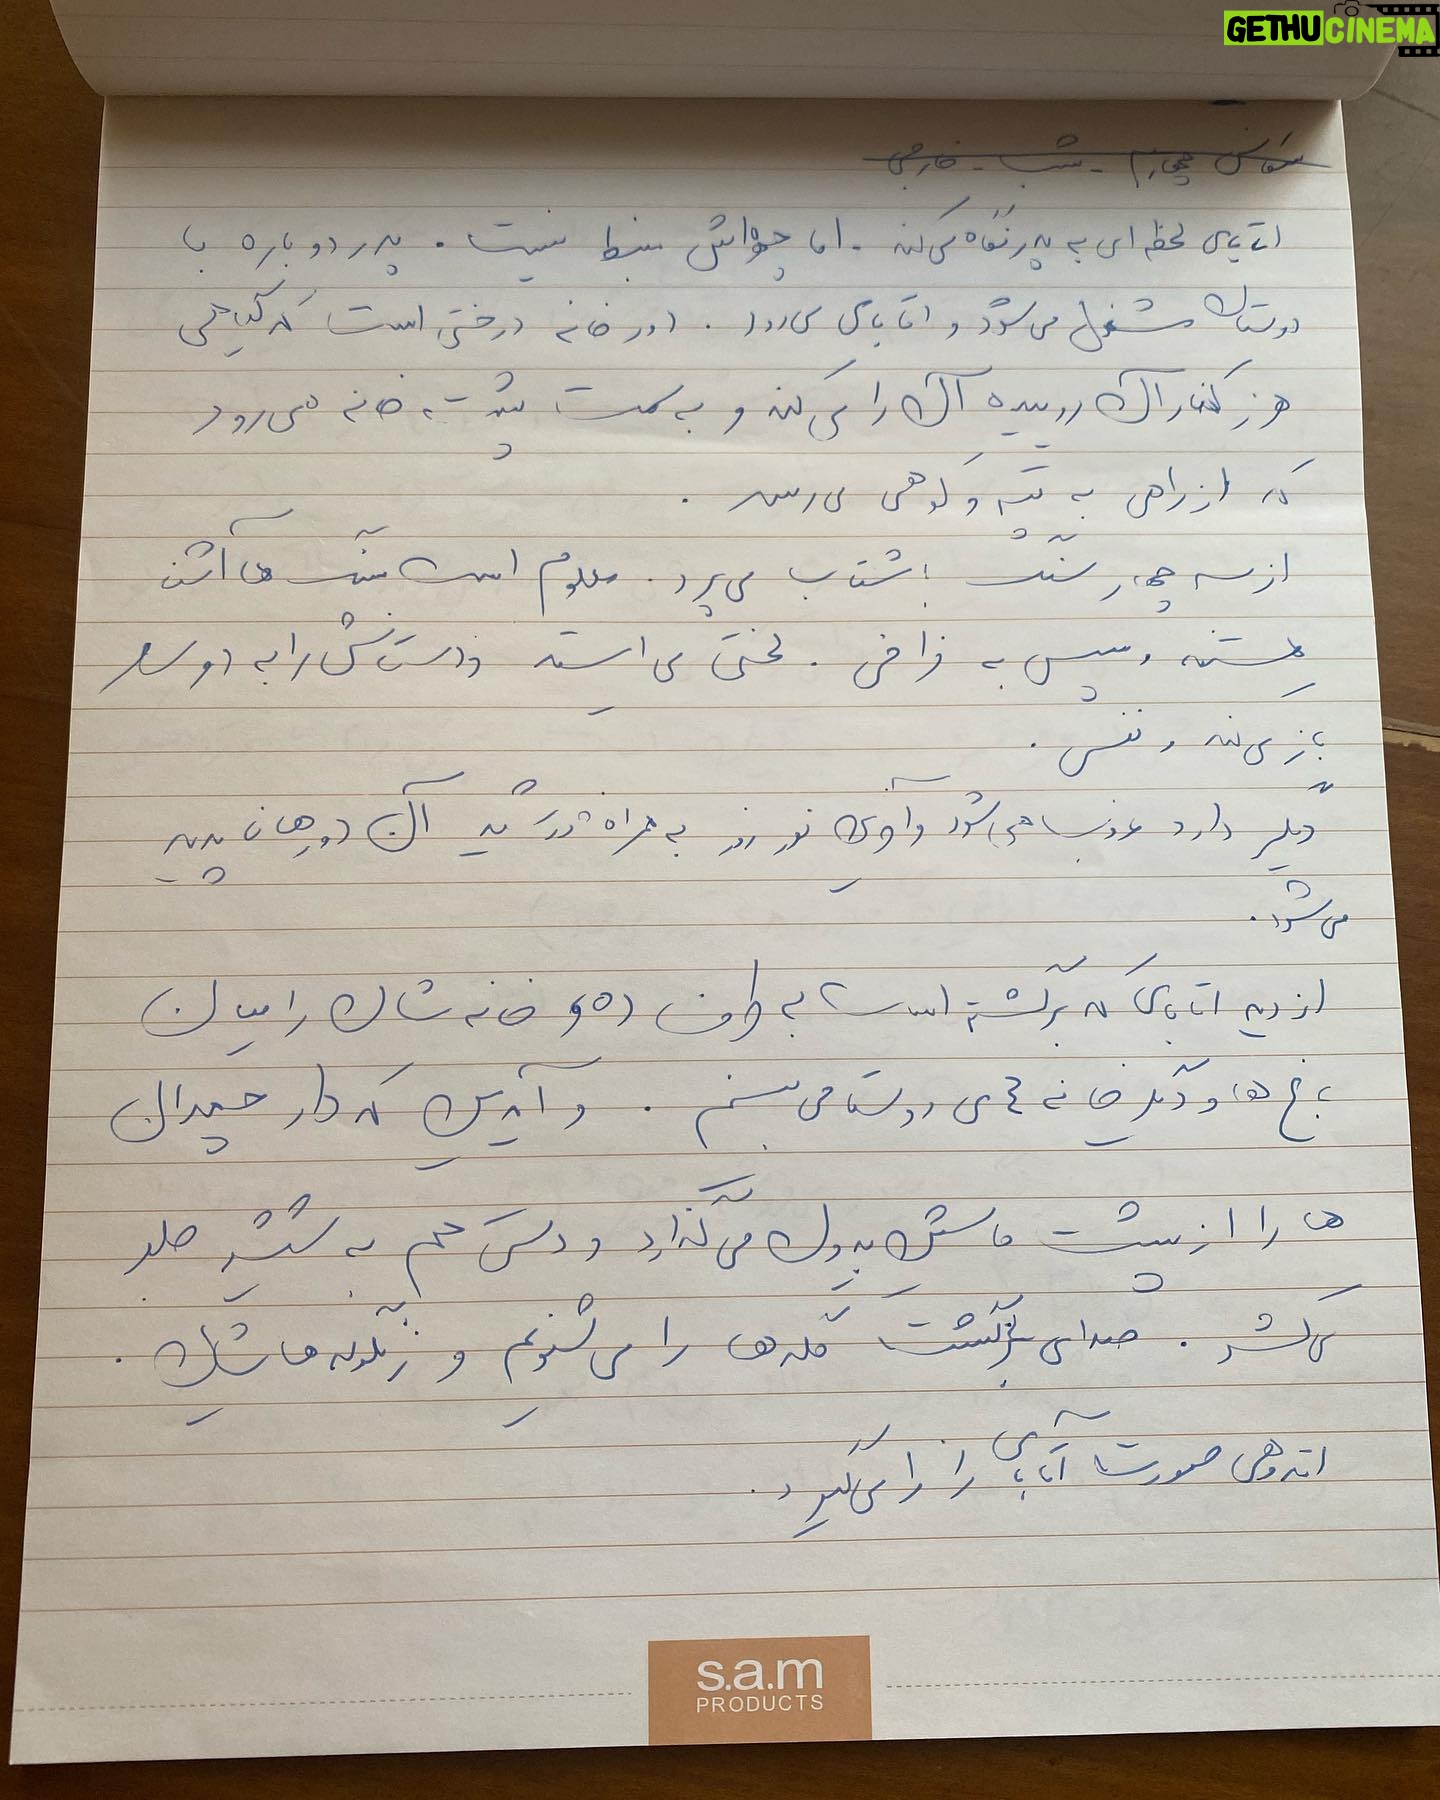 GETHUCINEMA
سکانس چهارم - شب - خارجی
اتابای لحظه ای به پدر نگاه می کند . اما جوابش منبط نیست . پدر دوباره با
دوستان مشغول می شود و اتابای می رود . در خانه درختی است که گیاهی
هرز کنار آن روییده آن را می کند و به سمت پشت خانه می رود
که از راهی به تپه و کوهی می رسد .
از سه چهار سنگ با شتاب می پرد . معلوم است سنگ ها آشنا
هستند و سپس به فراخی . لختی می ایستد و دستانش را به دو سو
باز می کند و نفس .
دیگر دارد غروب می شود و آخرین نور روز به همراه خورشید آن دورها ناپدید
می شود .
از دید اتابای که برگشته است به طرف ده و خانه شان را میان
باغ ها و دیگر خانه های روستا می بینیم . و آیدین که دارد چمدان
ها را از پشت ماشین بیرون می گذارد و دستی هم به شیشه جلو
می کشد . صدای بازگشت گله ها را می شنویم و زنگوله هاشان .
اندوهی صورت آتابای را فرا می گیرد .
s.a.m
PRODUCTS